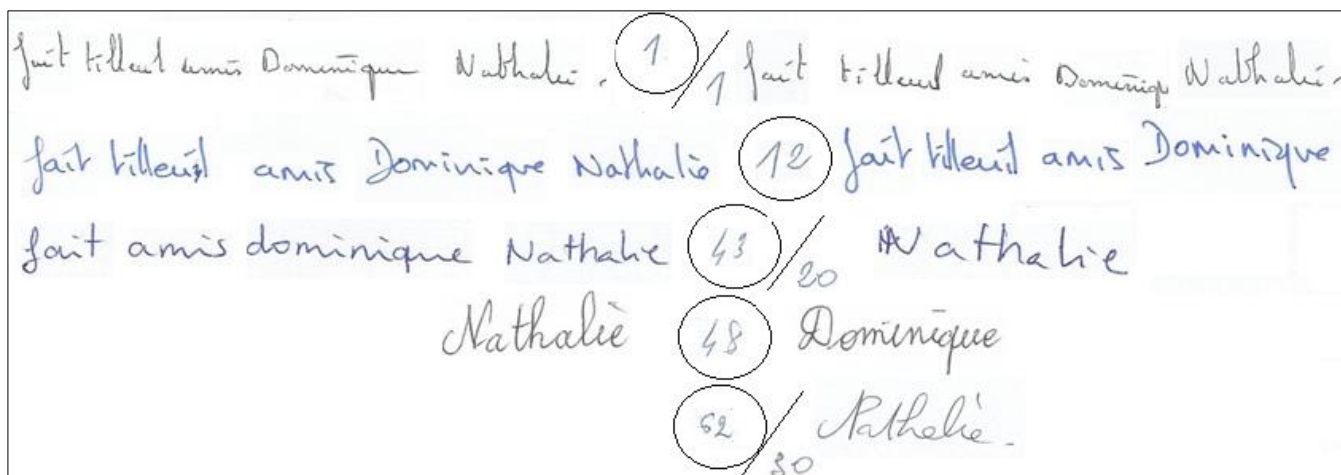 fait tilleul amis Dominique Nathalie. 1/1 fait tilleul amis Dominiq Nathalie.
fait tilleul amis Dominique Nathalie 12 fait tilleul amis Dominique
fait amis dominique Nathalie 43/20 Nathalie
Nathalie 48 Dominique
62/30 Nathalie.